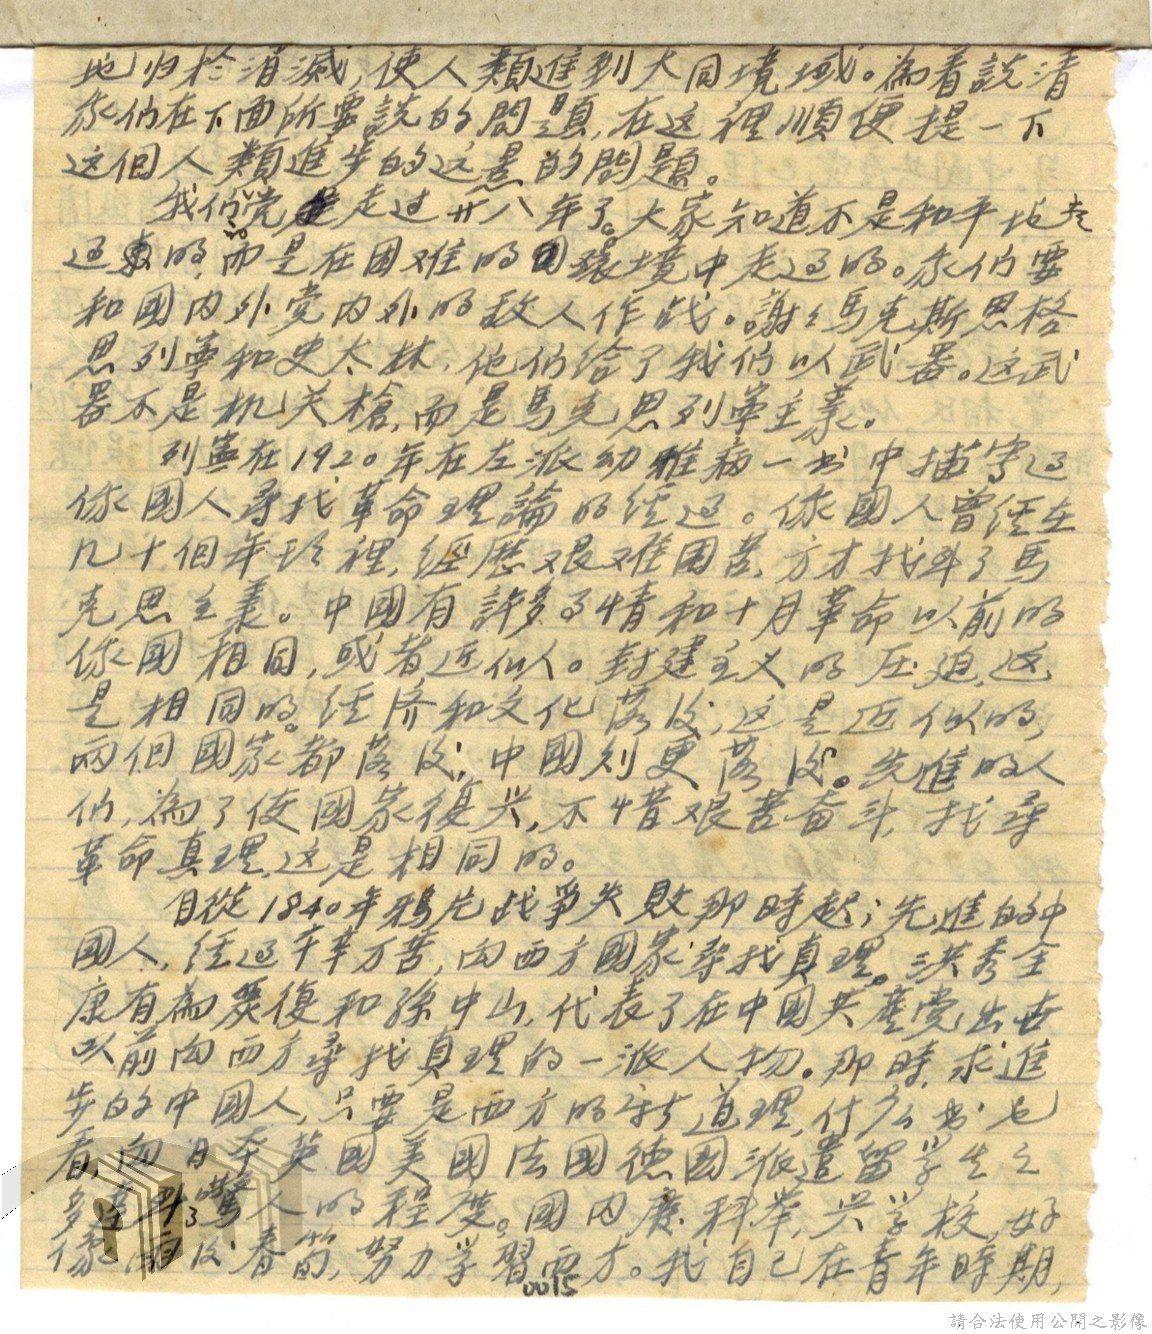 地归於消滅，使人類進到大同境域。為着説清
我們在下面所要説的問題，在这裡順便提一下
这個人類進步的远景的問題。
我們的党走过廿八年了。大家知道，不是和平地走
过的，而是在困难的環境中走过的。我們要
和國内外党内外的敌人作战。謝謝馬克斯恩格
思列寧和史太林，他們給了我們以武器。这武
器不是机关槍，而是馬克思列寧主義。
列寧在1920年在左派幼稚病一书中描写过
俄國人尋找革命理論的经过。俄國人曾经在
几十個年头裡，經歷艰难困苦，方才找到了馬
克思主義。中國有許多事情和十月革命以前的
俄國相同，或者近似。封建主义的压迫，这
是相同的。经济和文化落後，这是近似的，
両個國家都落後，中國则更落後。先進的人
们，為了使國家復兴，不惜艰苦奋斗，找尋
革命真理，这是相同的。
自從1840年鴉片战爭失敗那時起，先進的中
國人，经过千辛万苦，向西方國家尋找真理。洪秀全
康有為严復和孫中山，代表了在中國共產党出世
以前向西方尋找真理的一派人物。那時，求進
步的中國人，只要是西方的新道理，什么书也
看，向日本英國美國法國德國派遣留学生之
多，达到了驚人的程度。國内廢科举，兴学校，好
像雨後春筍，努力学習西方。我自己在青年時期，
0015
請合法使用公開之影像